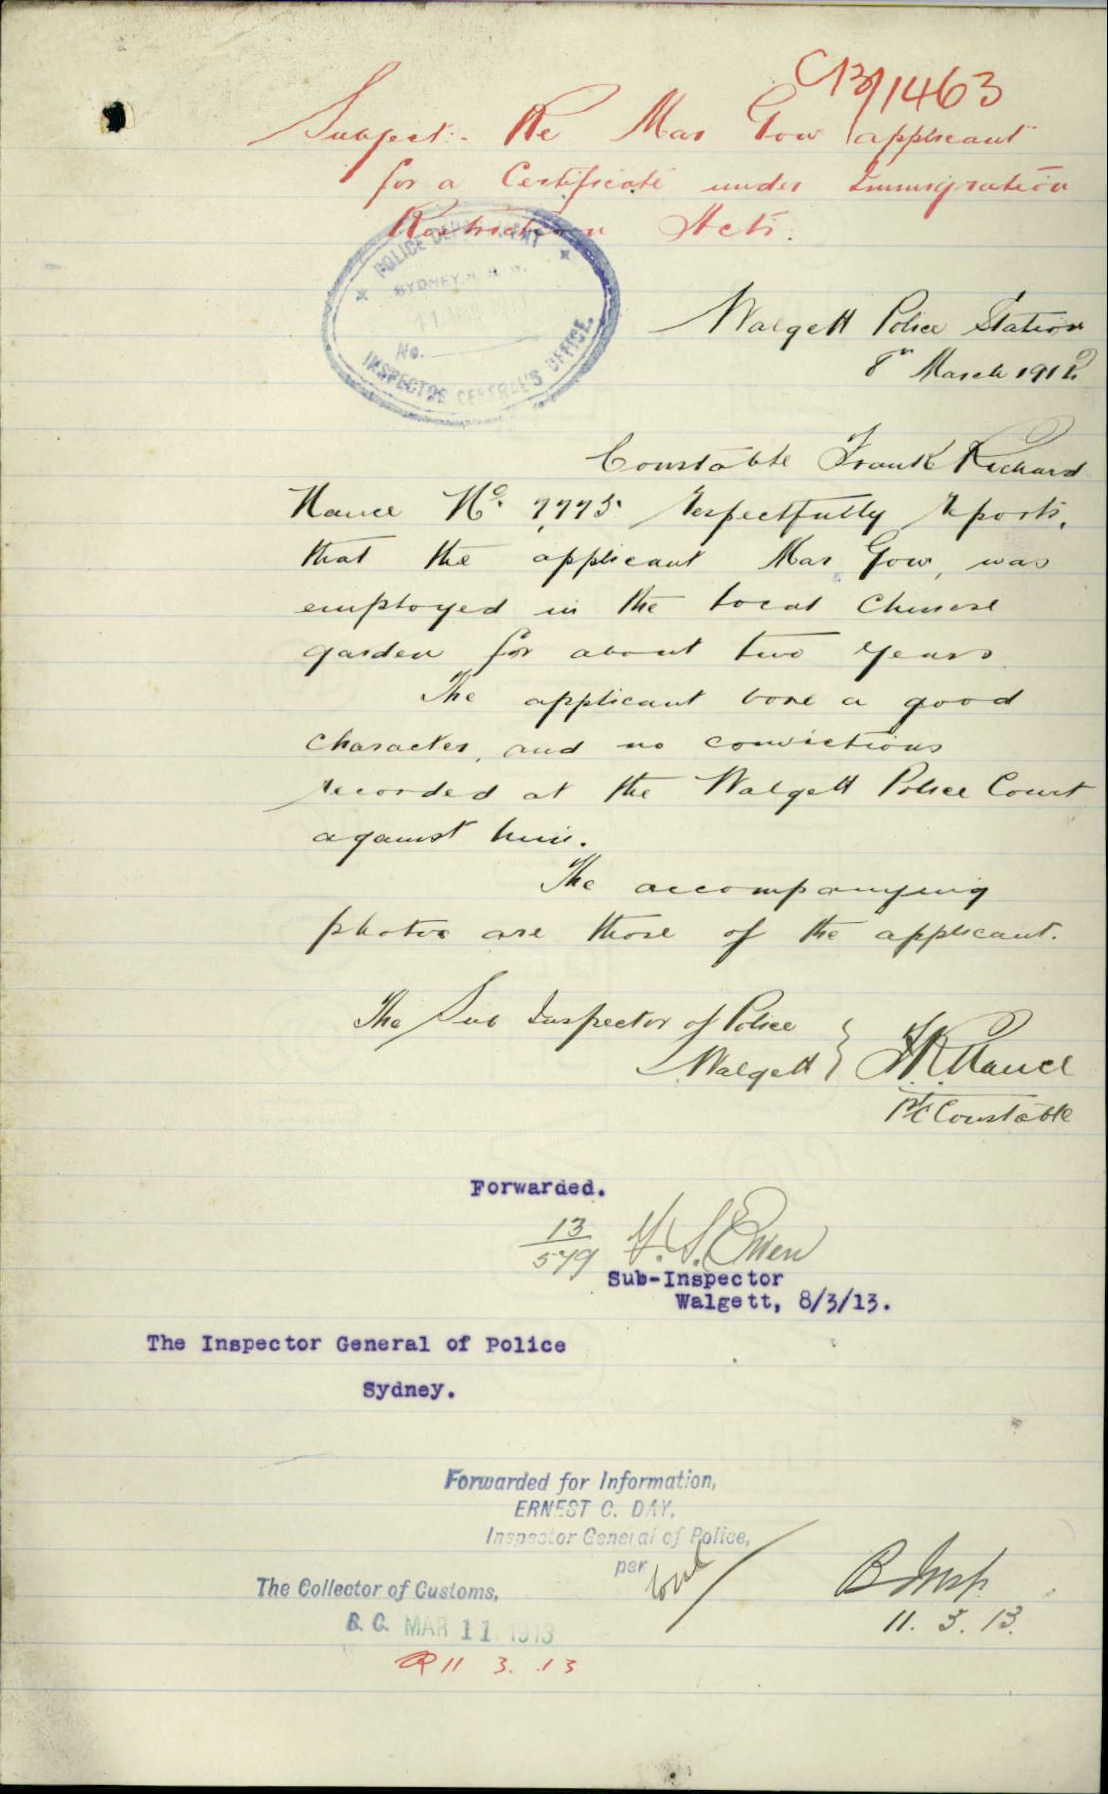 C13/1463
Subject:- Re Mar Gow applicant
for a Certificate under Immigration
Restriction Acts.
POLICE DEPARTMENT
SYDNEY, N.S.W.
11 MAR
No.
INSPECTOR GENERAL'S OFFICE.
Walgett Police Station
8th March 1913
Constable Frank Richard
Nance No. 7775 respectfully reports,
that the applicant Mar Gow, was
employed in the local Chinese
garden for about two years
The applicant bore a good
character, and no convictions
recorded at the Walgett Police Court
against him.
The accompanying
photos are those of the applicant.
The Sub Inspector of Police
Walgett } F R Nance
Constable
Forwarded.
13
579
Sub-Inspector
Walgett, 8/3/13.
The Inspector General of Police
Sydney.
Forwarded for Information,
ERNEST C. DAY,
Inspector General of Police,
per
The Collector of Customs,
B.C. MAR 11 1913
11. 3. 13.
11 3. 13